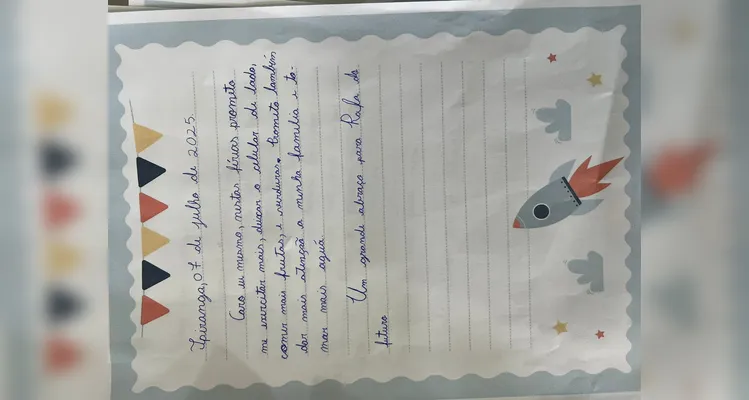 Ipiranga, 07 de julho de 2025.
Caro eu mesmo, nestas férias prometo
me exercitar mais, deixar o celular de lado,
comer mais frutas, e verduras. Prometo também
dar mais atenção a minha família e to-
mar mais aguá.
Um grande abraço para Rafa do
futuro